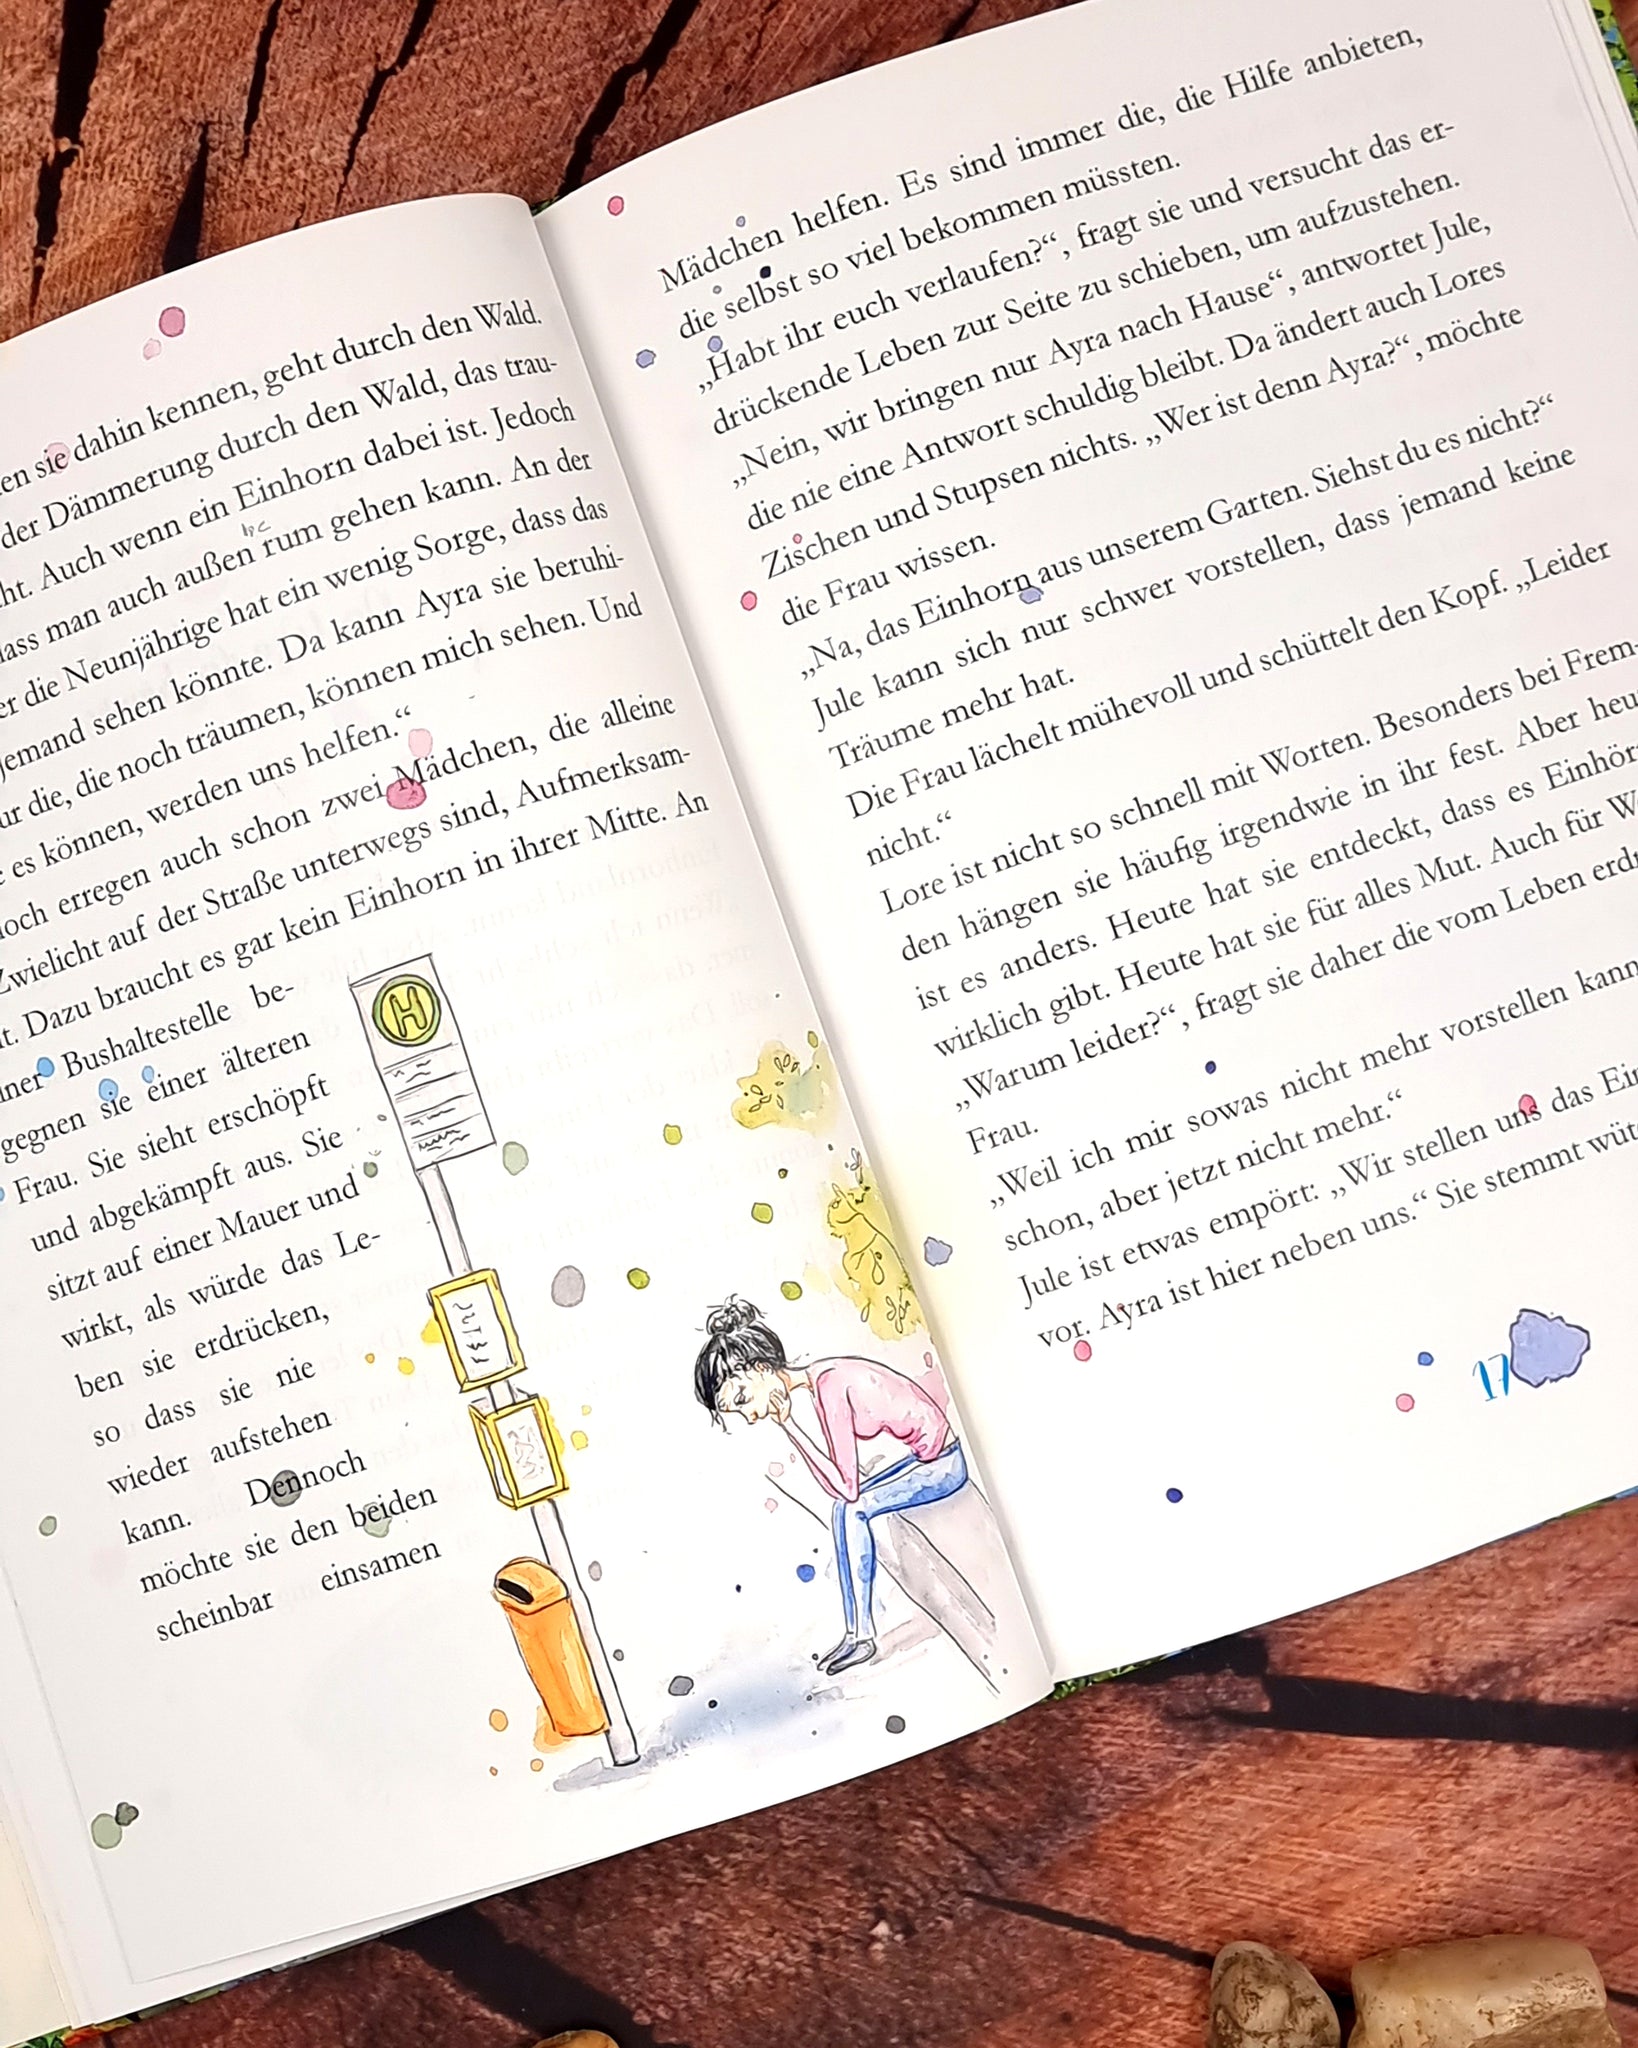 sie dahin kennen, geht durch den Wald.
der Dämmerung durch den Wald, das trau-
Auch wenn ein Einhorn dabei ist. Jedoch
man auch außen rum gehen kann. An der
die Neunjährige hat ein wenig Sorge, dass das
jemand sehen könnte. Da kann Ayra sie beruhi-
die, die noch träumen, können mich sehen. Und
es können, werden uns helfen.“
erregen auch schon zwei Mädchen, die alleine
Zwielicht auf der Straße unterwegs sind, Aufmerksam-
Dazu braucht es gar kein Einhorn in ihrer Mitte. An
Bushaltestelle be-
gegnen sie einer älteren
Frau. Sie sieht erschöpft
und abgekämpft aus. Sie
sitzt auf einer Mauer und
wirkt, als würde das Le-
ben sie erdrücken,
so dass sie nie
wieder aufstehen
kann. Dennoch
möchte sie den beiden
scheinbar einsamen
H
Mädchen helfen. Es sind immer die, die Hilfe anbieten,
die selbst so viel bekommen müssten.
„Habt ihr euch verlaufen?“, fragt sie und versucht das er-
drückende Leben zur Seite zu schieben, um aufzustehen.
„Nein, wir bringen nur Ayra nach Hause“, antwortet Jule,
die nie eine Antwort schuldig bleibt. Da ändert auch Lores
Zischen und Stupsen nichts. „Wer ist denn Ayra?“, möchte
die Frau wissen.
„Na, das Einhorn aus unserem Garten. Siehst du es nicht?“
Jule kann sich nur schwer vorstellen, dass jemand keine
Träume mehr hat.
Die Frau lächelt mühevoll und schüttelt den Kopf. „Leider
nicht.“
Lore ist nicht so schnell mit Worten. Besonders bei Frem-
den hängen sie häufig irgendwie in ihr fest. Aber
ist es anders. Heute hat sie entdeckt, dass es
wirklich gibt. Heute hat sie für alles Mut. Auch für
„Warum leider?“, fragt sie daher die vom Leben
Frau.
„Weil ich mir sowas nicht mehr vorstellen kann
schon, aber jetzt nicht mehr.“
Jule ist etwas empört: „Wir stellen uns das
vor. Ayra ist hier neben uns.“ Sie stemmt
17